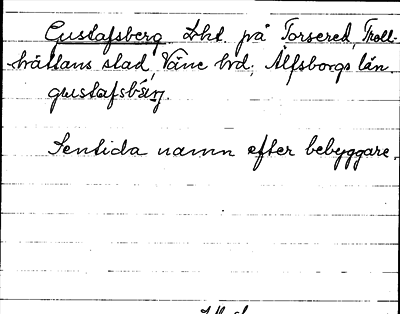 Gustafsberg Lht. på Torsered, Troll-
hättans stad, Väne hd, Älfsborgs län.
gustafsbärj.
Sentida namn efter bebyggare.